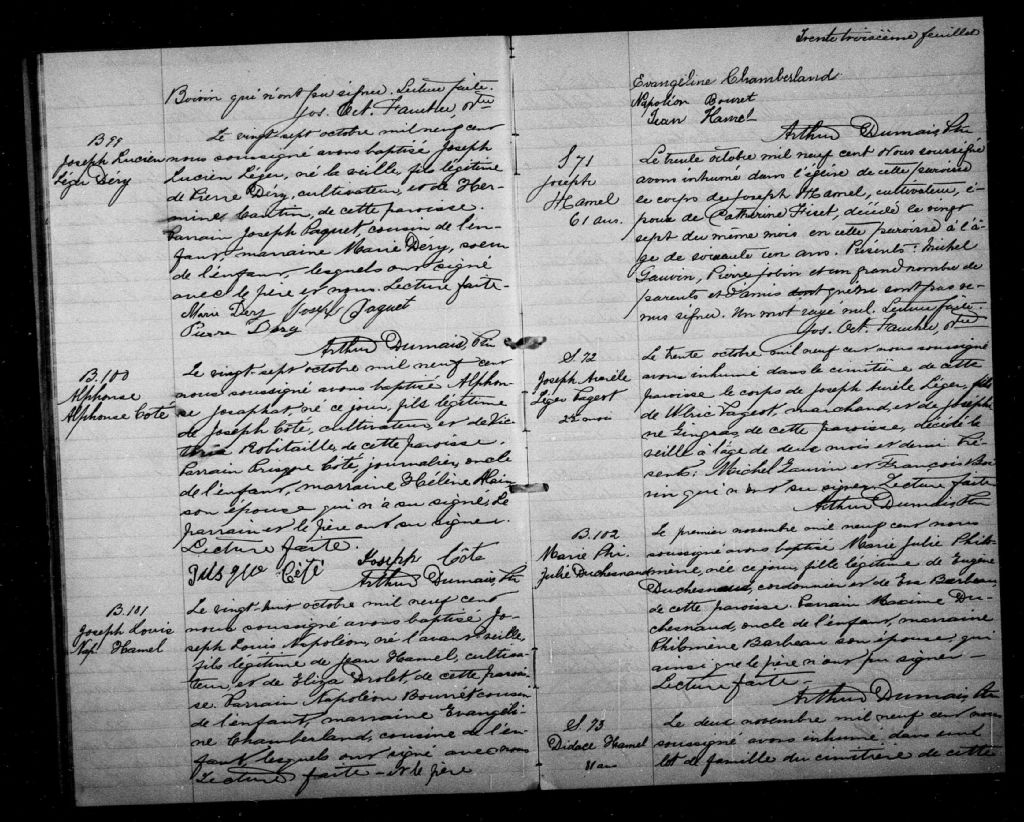 Boivin qui n'ont pu signer. Lecture faite.
Jos. Oct. Faucher, Ptre
B 99
Joseph Lucien
Léger Déry
Le vingt sept octobre mil neuf cent
nous soussigné avons baptisé Joseph
Lucien Léger, né la veille, fils légitime
de Pierre Déry, cultivateur, et de Her-
mine Cantin, de cette paroisse.
Parrain Joseph Paquet, cousin de l'en-
fant, marraine Marie Dery, soeur
de l'enfant, lesquels ont signé
avec le père et nous. Lecture faite-
Marie Dery Joseph Paquet
Pierre Dery
Arthur Dumais, Ptr
B. 100
Alphonse
Alphonse Côté
Le vingt sept octobre mil neuf cent
nous soussigné avons baptisé Alphon-
se Josaphat, né ce jour, fils légitime
de Joseph Côté, cultivateur, et de Vic-
toria Robitaille, de cette paroisse.
Parrain Prisque Côté, journalier, oncle
de l'enfant, marraine Hélène Alain
son épouse qui n'a su signé, Le
parrain et le père ont su signer.
Lecture faite.
Joseph Côté
Côté
Arthur Dumais, Ptr
B. 101
Joseph Louis
Nap. Hamel
Le vingt-huit octobre mil neuf cent
nous soussigné avons baptisé Jo-
seph Louis Napoléon, né l'avant veille,
fils légitime de Jean Hamel, cultiva-
teur, et de Eliza Drolet de cette parois-
se. Parrain Napoléon Bourret cousin
de l'enfant, marraine Evangéli-
ne Chamberland, cousine de l'en-
fant lesquels ont signé avec nous
Lecture faite - et le père
Trente troisième feuillet
Evangéline Chamberland
Napoléon Bourret
Jean Hamel
Arthur Dumais, Ptr
S 71
Joseph
Hamel
61 ans.
Le trente octobre mil neuf cent Nous soussigné
avons inhumé dans l'église de cette paroisse
le corps de Joseph Hamel, cultivateur, é-
poux de Catherine Fiset, décédé le vingt
sept du même mois en cette paroisse à l'â-
ge de soixante un ans. Présents: Michel
Gauvin, Pierre Jobin et un grand nombre de
parents et d'amis dont qui ne sont pas ve-
nus signer. Un mot rayé nul. Lecture faite
Jos. Oct. Faucher, Ptre
S. 72
Joseph Aurèle
Léger Pageot
2½ mois
Le trente octobre mil neuf cent nous soussigné
avons inhumé dans le cimetière de cette
paroisse le corps de Joseph Aurèle Léger, fils
de Ulric Pageot, marchand, et de Joséphi-
ne Gingras, de cette paroisse, décédé la
veille à l'âge de deux mois et demi Pré-
sents: Michel Gauvin et François Boi-
vin qui n'ont su signer Lecture faite
Arthur Dumais, Ptr
B. 102
Marie Phi.
Julie Duchesnaud
Le premier novembre mil neuf cent nous
soussigné avons baptisé Marie Julie Philo-
mène, née ce jour, fille légitime de Eugène
Duchesnaud, cordonnier et de Eva Barbeau
de cette paroisse. Parrain Maxime Du-
chesnaud, oncle de l'enfant, marraine
Philomène Barbeau son épouse, qui
ainsi que le père n'ont pu signer-
Lecture faite-
Arthur Dumais, Ptr
S. 73
Didace Hamel
Le deux novembre mil neuf cent nous
soussigné avons inhumé dans un
lot de famille du cimetière de cette